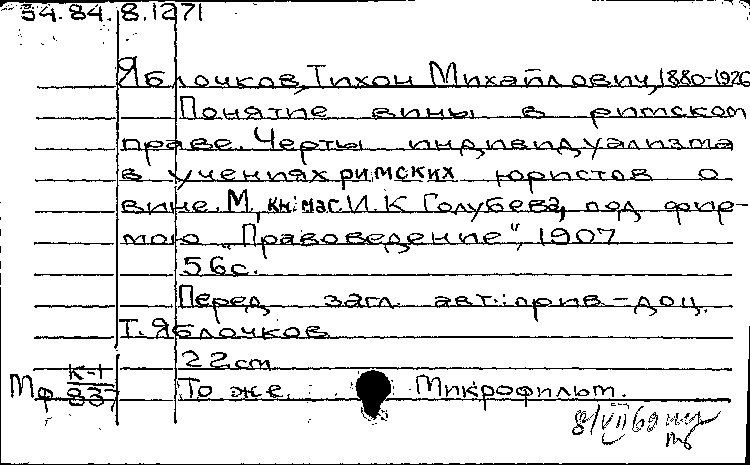 34.84.8.1271
Яблочков, Тихон Михайлович, 1880-1926
Понятие вины в римском
праве. Черты индивидуализма
в учениях римских юристов о
вине. М., кн. маг. И. К. Голубева, под фир-
мою „Правоведение“, 1907
56с.
Перед загл. авт.: прив-доц.
Т. Яблочков
22 см
Мф К-1/837 То же. Микрофильм.
8/VII 60